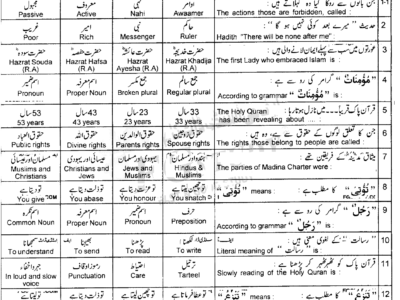 مجہول معروف نہی اوامر
جن باتوں سے روکا گیا ہو کہلاتے ہیں : 1-1
Passive Active Nahi Awaamer
The actions those are forbidden, called :
غریب امیر نبی حاکم
حدیث "میرے بعد کوئی نہیں ہو گا" : 2
Poor Rich Messenger Ruler
Hadith "There will be none after me" :
حضرت سودہ حضرت حفصہ حضرت عائشہ حضرت خدیجہ
عورتوں میں سب سے پہلے ایمان لانے والی ہیں : 3
Hazrat Souda (R.A) Hazrat Hafsa (R.A) Hazrat Ayesha (R.A) Hazrat Khadija (R.A)
The first Lady who embraced Islam is :
اسم ضمیر اسم معرفہ جمع مکسر جمع سالم
"مُؤْمِنَاتٌ" گرامر کی رو سے ہے : 4
Pronoun Proper Noun Broken plural Regular plural
According to grammar "مُؤْمِنَاتٌ" is :
53-سال 43-سال 23-سال 33-سال
5
53 years 43 years 22 years 33 years
The Holy Quran has been revealing about
حقوق العباد حقوق اللہ حقوق الوالدین حقوق زوجین
جن کا تعلق لوگوں کے حقوق سے ہے، وہ ہیں : 6
Pubic rights Divine rights Parents rights Spouse rights
The rights those belong to people are called :
مسلمان اور عیسائی عیسائی اور یہودی یہودی اور مسلمان ہندو اور مسلمان
میثاق مدینہ کے فریقین تھے : 7
Muslims and Christians Christians and Jews Jews and Muslims Hindus & Muslims
The parties of Madina Charter were :
تو دیتا ہے تو ذلت دیتا ہے تو عزت دیتا ہے تو چھین لیتا ہے
"تُؤْتِی" کا مطلب ہے : "تُؤْتِی" means : 8
You give You abuse You honour You snatch
اسم نکرہ اسم معرفہ اسم ضمیر حرف
"رَجُلٌ" گرامر کی رو سے ہے : 9
Common Noun Proper Noun Pronoun Preposition
According to grammar "رَجُلٌ" is :
سمجھنا بھیجنا پڑھنا
"رسالت" کے لغوی معنی ہیں : 10
To understand To send To read To study
Literal meaning of "رسالت" is :
رموز اوقاف احتیاط ترتیل
قرآن پاک کو ٹھہر ٹھہر کر پڑھنا ہے : 11
In loud and slow voice Punctuation Care Tarteel
Slowly reading of the Holy Quran is :
means : 12